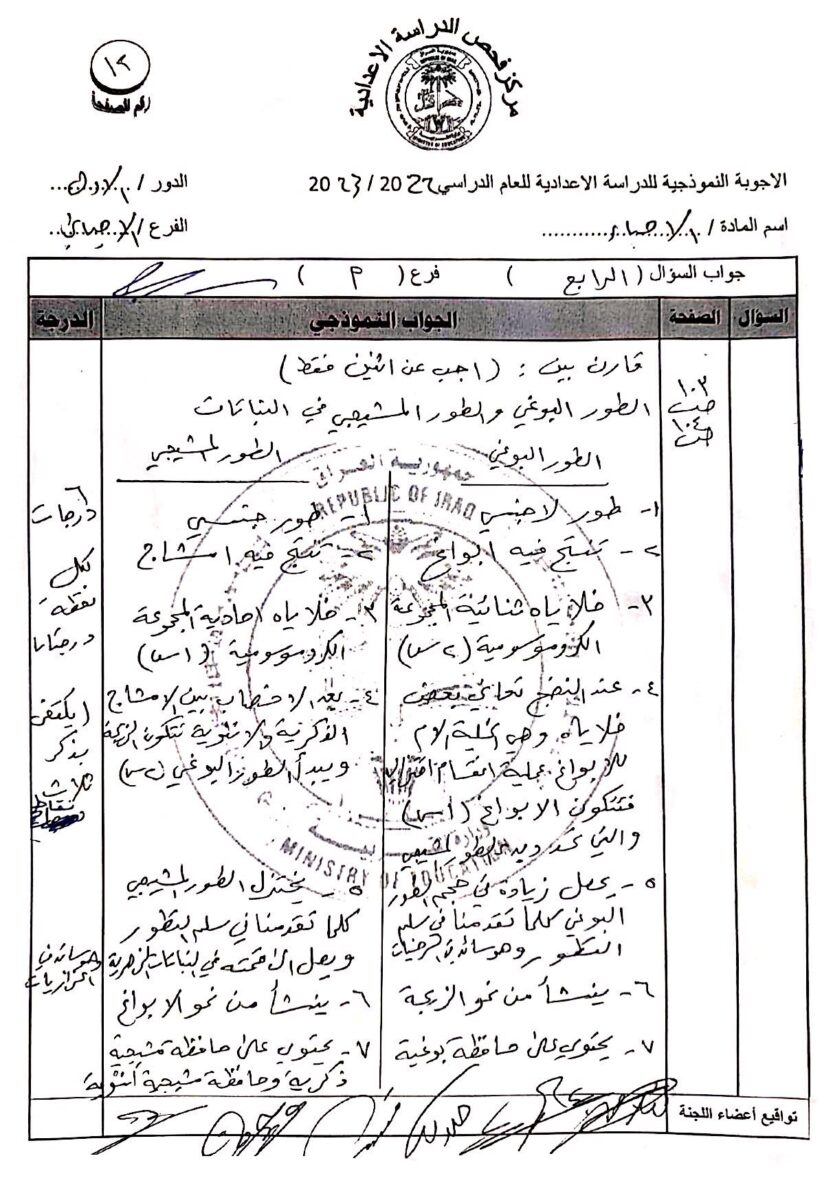 مركز فحص الدراسة الاعدادية
١٢
رقم الصفحة
الاجوبة النموذجية للدراسة الاعدادية للعام الدراسي 2022 / 2023
الدور / الاول
اسم المادة / الاحياء
الفرع / الاحيائي
جواب السؤال ( الرابع ) فرع ( م )
السؤال الصفحة الجواب النموذجي الدرجة
قارن بين : ( اجب عن اثنين فقط )
١٠٣
ص
١٠٤
ص
الطور البوغي والطور المشيجي في النباتات
الطور البوغي
١- طور لاجنسي
٢- تنتج فيه ابواغ
٣- خلاياه ثنائية المجموعة
الكروموسومية (٢س)
٤- عند النضج تعاني بعض
خلاياه وهي الخلية الام
للابواغ عملية انقسام اختزالي
فتتكون الابواغ (١س)
والتي
٥- يحصل زيادة في حجم الطور
البوغي كلما تقدمنا في سلم
التطور وهو سائد في السرخسيات
٦- ينشأ من نمو الزيجة
٧- يحتوي على حافظة بوغية
الطور المشيجي
١- طور جنسي
٢- تنتج فيه امشاج
٣- خلاياه احادية المجموعة
الكروموسومية (١س)
٤- بعد الاخصاب بين الامشاج
الذكرية والانثوية تتكون الزيجة
ويبدأ الطور البوغي (٢س)
٥- يختزل الطور المشيجي
كلما تقدمنا في سلم التطور
ويصل الى قمته في النباتات الزهرية
وهو سائد في
الحزازيات
٦- ينشأ من نمو الابواغ
٧- يحتوي على حافظة مشيجية
ذكرية وحافظة مشيجية أنثوية
٦
درجات
لكل
نقطة
درجتان
( يكتفى
بذكر
ثلاث
نقاط
جمهورية العراق
REPUBLIC OF IRAQ
وزارة التربية
MINISTRY OF EDUCATION
تواقيع أعضاء اللجنة